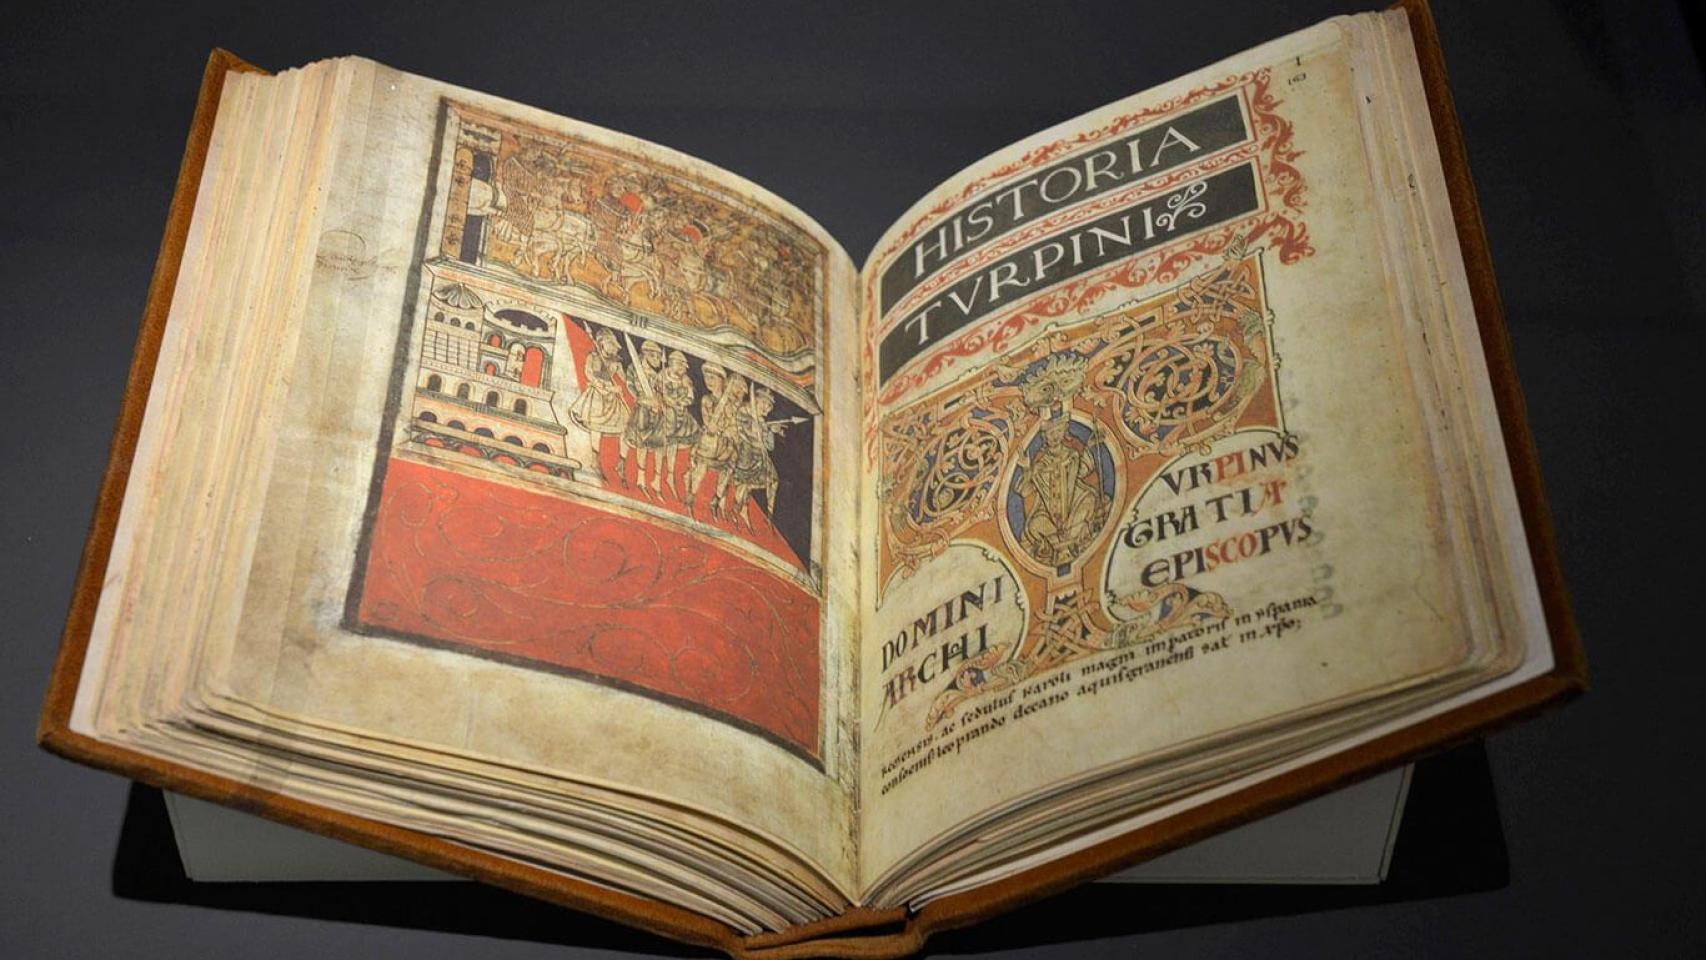 I
163
HISTORIA
TVRPINI
VRPINVS
GRATIA
EPISCOPVS
DOMINI
ARCHI
Remensis. ac sedulus karoli magni imparoris in yspania
consocius leoprando decano aquisgranensi sal in xpo;